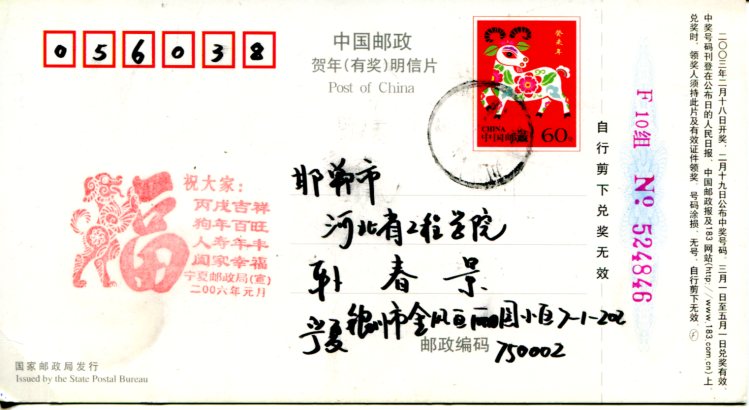 056038
中国邮政
贺年(有奖)明信片
Post of China
癸未年
CHINA
中国邮政 60分
邯郸市
河北省工程学院
靳春景
宁夏银川市金凤区丽园小区7-1-202
邮政编码 750002
祝大家:
丙戌吉祥
狗年百旺
人寿年丰
阖家幸福
宁夏邮政局(宣)
二00六年元月
福
国家邮政局发行
Issued by the State Postal Bureau
自行剪下兑奖无效
F 10组 № 524846
二〇〇三年二月十八日开奖,二月十九日公布中奖号码,三月一日至五月一日兑奖有效。
中奖号码刊登在公布日的人民日报、中国邮政报及183网站(http://www.183.com.cn)上
兑奖时,领奖人须持此片及有效证件领奖,号码涂损、无号、自行剪下无效。